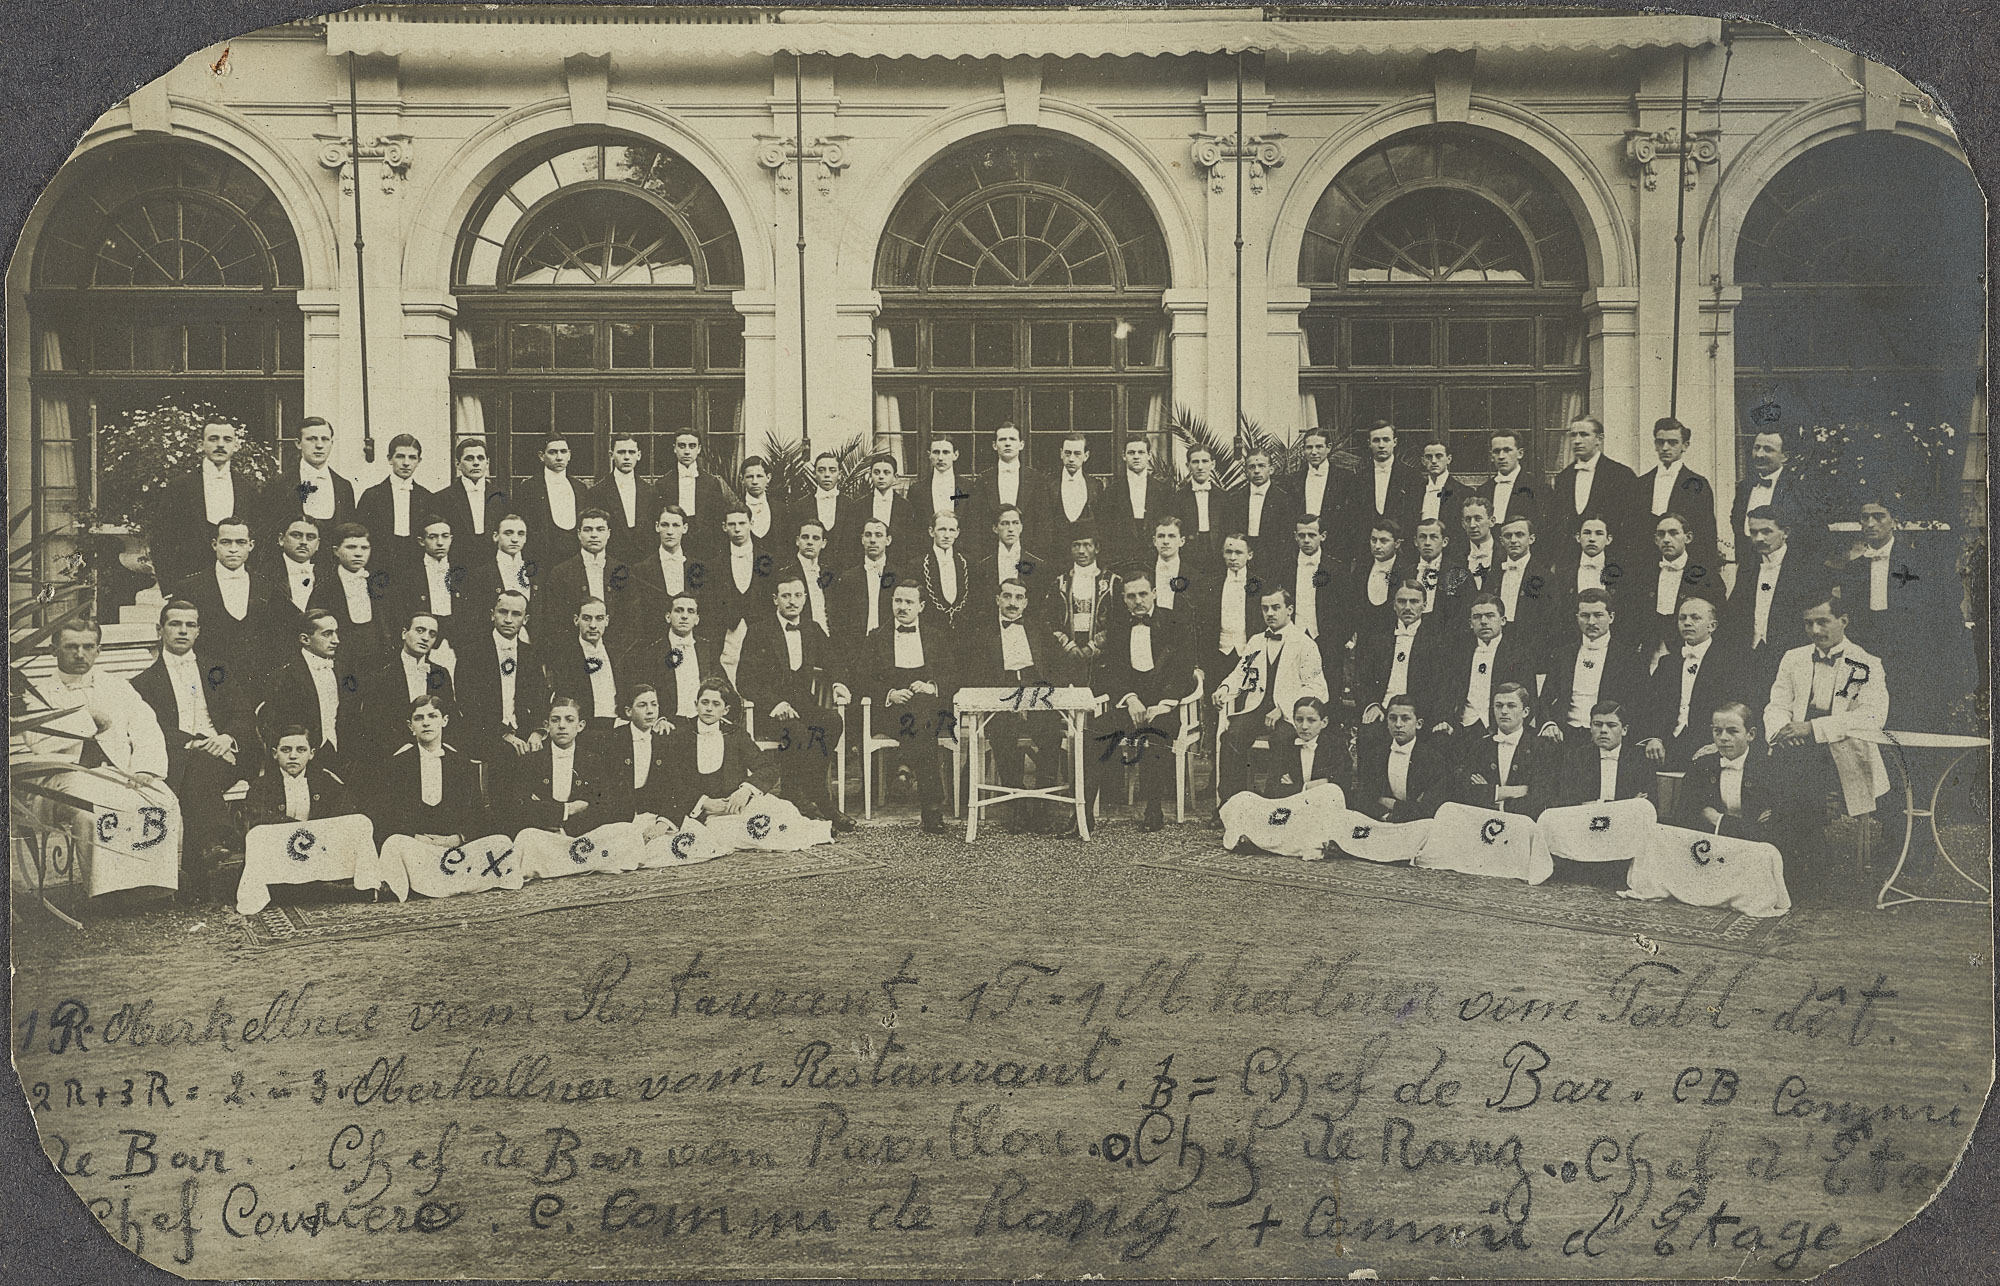 +
+
c c c c c c o o o o o c c c c
+
o o o o o o
1B.
o o
P.
1R
3.R 2.R 1T.
C.B C. C.X. C. C C. o o C. o C.
1 R. Oberkellner vom Restaurant. 1T. = 1 Obkellner vom Tabl-dôt.
2 R + 3 R = 2. u 3. Oberkellner vom Restaurant. 1B = Chef de Bar. CB Commi
de Bar. . Chef de Bar vom Pavillon. o. Chef de Rang. o Chef d'Eta
Chef Couriere. C. Commi de Rang, + Commi d'Etage